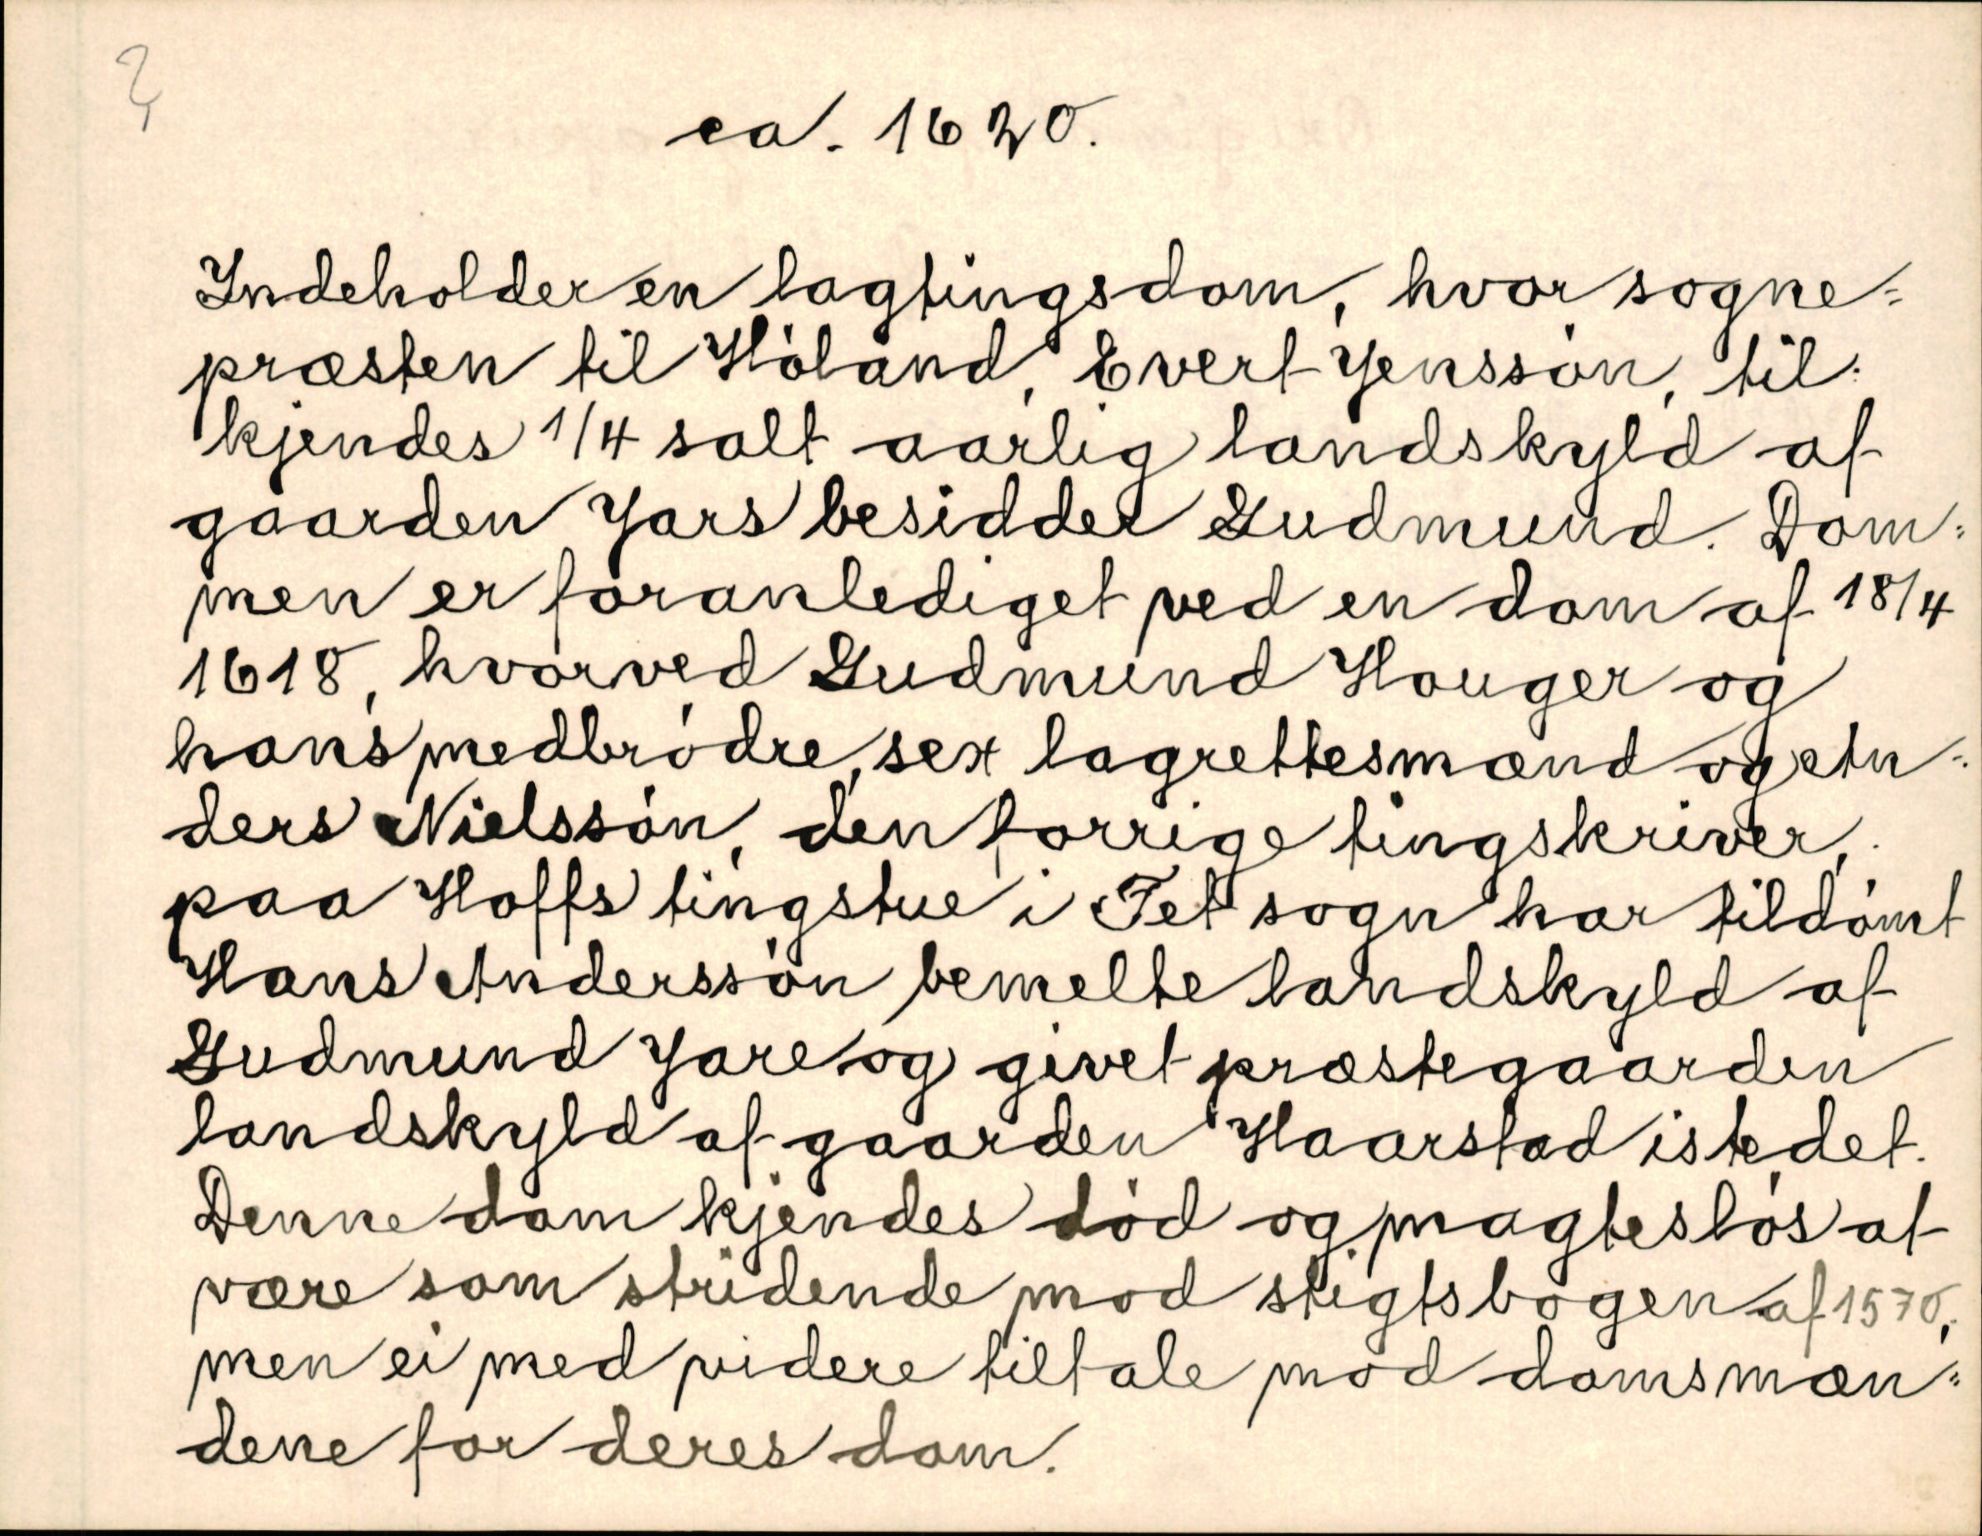 ca. 1620.
Indeholder en lagtingsdom, hvor sogne=
præsten til Hóland, Evert Jenssón, til=
kjendes 1/4 salt aarlig landskyld af
gaarden Jars besidder Gudmund. Dom=
men er foranlediget ved en dom af 18/4
1618, hvorved Gudmund Houger og
hans medbródre, sex lagrettesmænd og An=
ders Nielssón, den forrige tingskriver,
paa Hoffs tingstue i Fet sogn har tildómt
Hans Anderssón bemelte landskyld af
Gudmund Jare og givet præstegaarden
landskyld af gaarden Haarstad istedet.
Denne dom kjendes dód og magteslós at
være som stridende mod stigtsbogen af 1570,
men ei med videre tiltale mod domsmæn=
dene for deres dom.